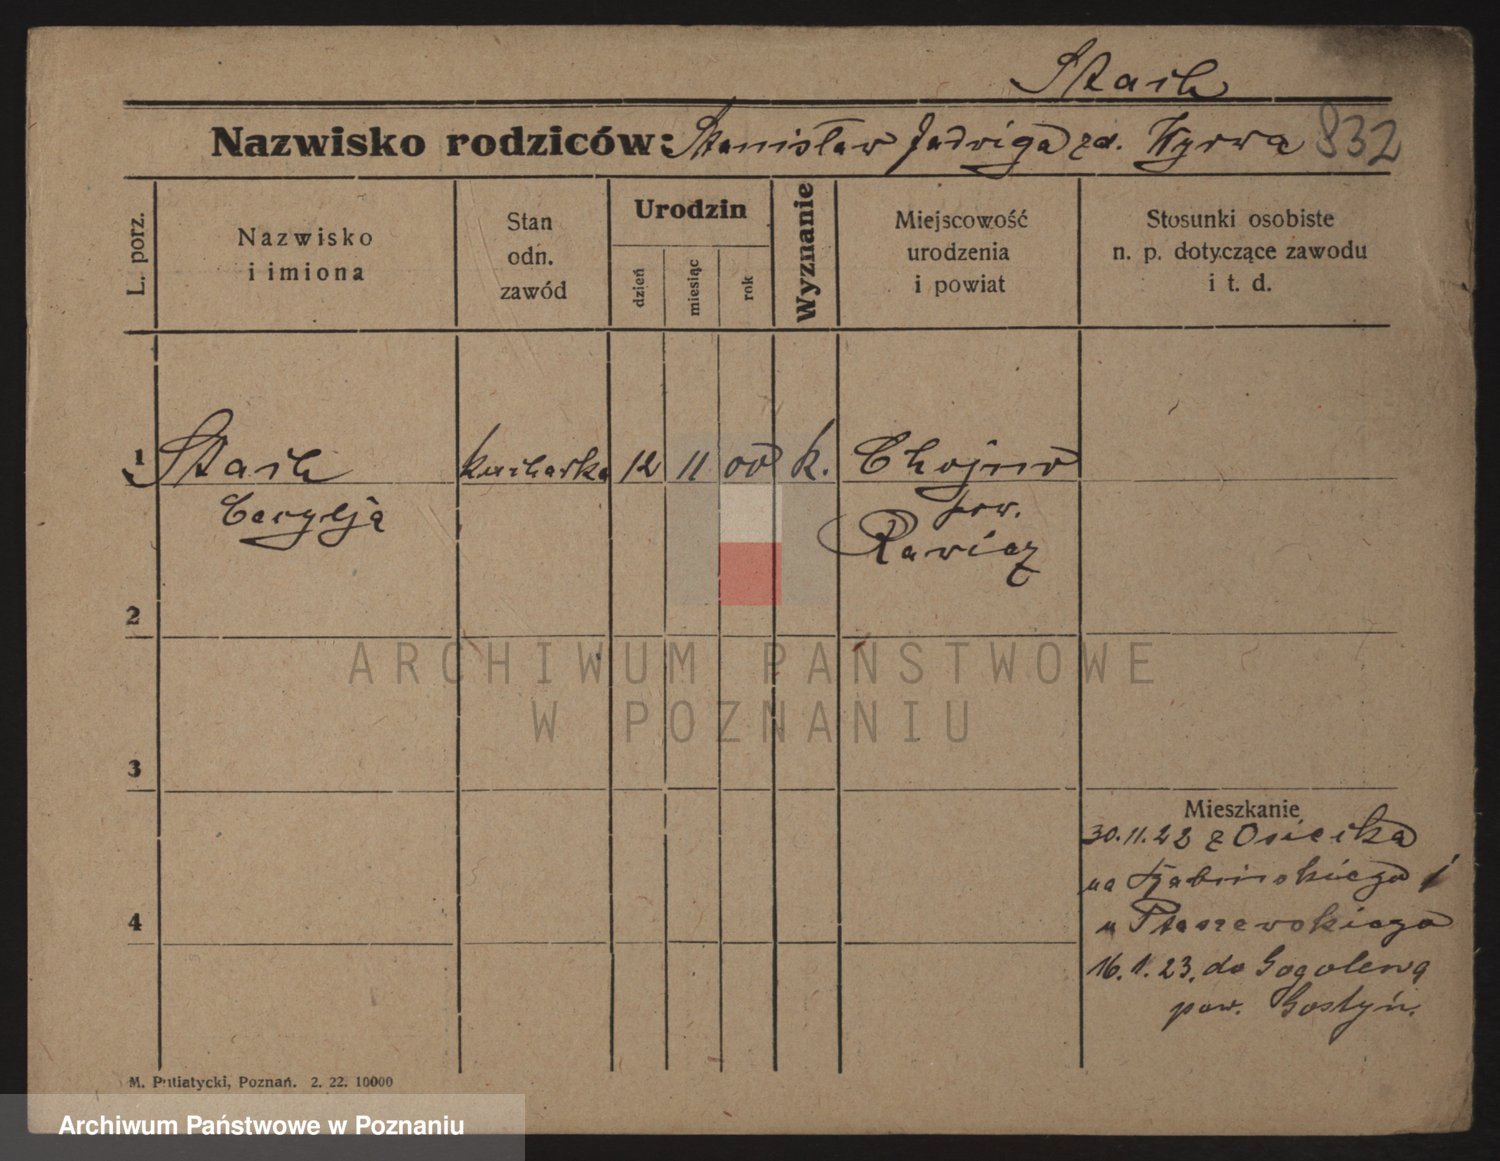 Stach
Nazwisko rodziców: Stanisław Jadwiga zd. Wyrwa 832
L. porz.
Nazwisko
i imiona
Stan
odn.
zawód
Urodzin
dzień
miesiąc
rok
Wyznanie
Miejscowość
urodzenia
i powiat
Stosunki osobiste
n. p. dotyczące zawodu
i t. d.
1 Stach kucharka 12 11 00 k. Chojno
Cecylja pow.
Rawicz
2
ARCHIWUM PAŃSTWOWE
W POZNANIU
3
Mieszkanie
30.11.22 z Osiecka
na
u Ptaszewskiego
4
16.1.23. do Gogolewa
pow. Gostyń.
M. Putiatycki, Poznań. 2. 22. 10000
Archiwum Państwowe w Poznaniu